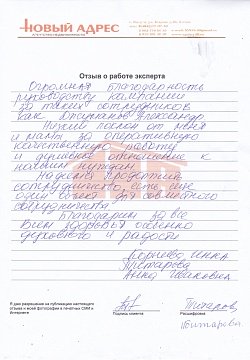 НОВЫЙ АДРЕС
Отзыв о работе эксперта
Огромная благодарность
руководству компании
за таких сотрудников
как Александр
Низкий поклон от меня
и мамы за оперативную
качественную работу
и душевное отношение к
нашим нуждам.
Надеемся продолжить
сотрудничество, есть еще
один объект для совместного
сотрудничества!
Благодарим за все
Всем здоровья особенно
духовного и радости
Инна
Анна Ивановна
Я даю разрешение на публикацию настоящего
отзыва и моей фотографии в печатных СМИ и
Интернете
Подпись клиента
Расшифровка